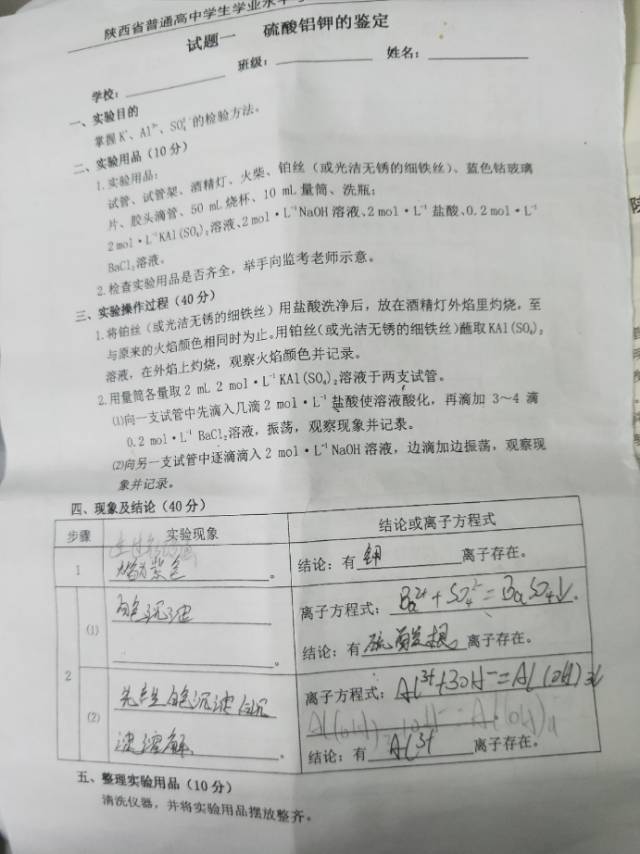 陕西省普通高中学生学业水平
试题一 硫酸铝钾的鉴定
学校: 班级: 姓名:
一、实验目的
掌握K⁺、Al³⁺、SO₄²⁻的检验方法。
二、实验用品(10分)
1.实验用品:
试管、试管架、酒精灯、火柴、铂丝(或光洁无锈的细铁丝)、蓝色钴玻璃
片、胶头滴管、50 mL烧杯、10 mL量筒、洗瓶;
2 mol·L⁻¹KAl(SO₄)₂溶液、2 mol·L⁻¹NaOH溶液、2 mol·L⁻¹盐酸、0.2 mol·L⁻¹
BaCl₂溶液。
2.检查实验用品是否齐全,举手向监考老师示意。
三、实验操作过程(40分)
1.将铂丝(或光洁无锈的细铁丝)用盐酸洗净后,放在酒精灯外焰里灼烧,至
与原来的火焰颜色相同时为止。用铂丝(或光洁无锈的细铁丝)蘸取KAl(SO₄)₂
溶液,在外焰上灼烧,观察火焰颜色并记录。
2.用量筒各量取2 mL 2 mol·L⁻¹ KAl(SO₄)₂溶液于两支试管。
⑴向一支试管中先滴入几滴2 mol·L⁻¹盐酸使溶液酸化,再滴加3~4滴
0.2 mol·L⁻¹ BaCl₂溶液,振荡,观察现象并记录。
⑵向另一支试管中逐滴滴入2 mol·L⁻¹NaOH溶液,边滴加边振荡,观察现
象并记录。
四、现象及结论(40分)
步骤 实验现象 结论或离子方程式
1 紫色。 结论:有钾离子存在。
2 ⑴ 白色沉淀。 离子方程式:Ba²⁺+SO₄²⁻=BaSO₄↓.
结论:有硫酸根离子存在。
⑵ 先产生白色沉淀后沉 离子方程式:Al³⁺+3OH⁻=Al(OH)₃↓
淀溶解。
结论:有Al³⁺离子存在。
五、整理实验用品(10分)
清洗仪器,并将实验用品摆放整齐。